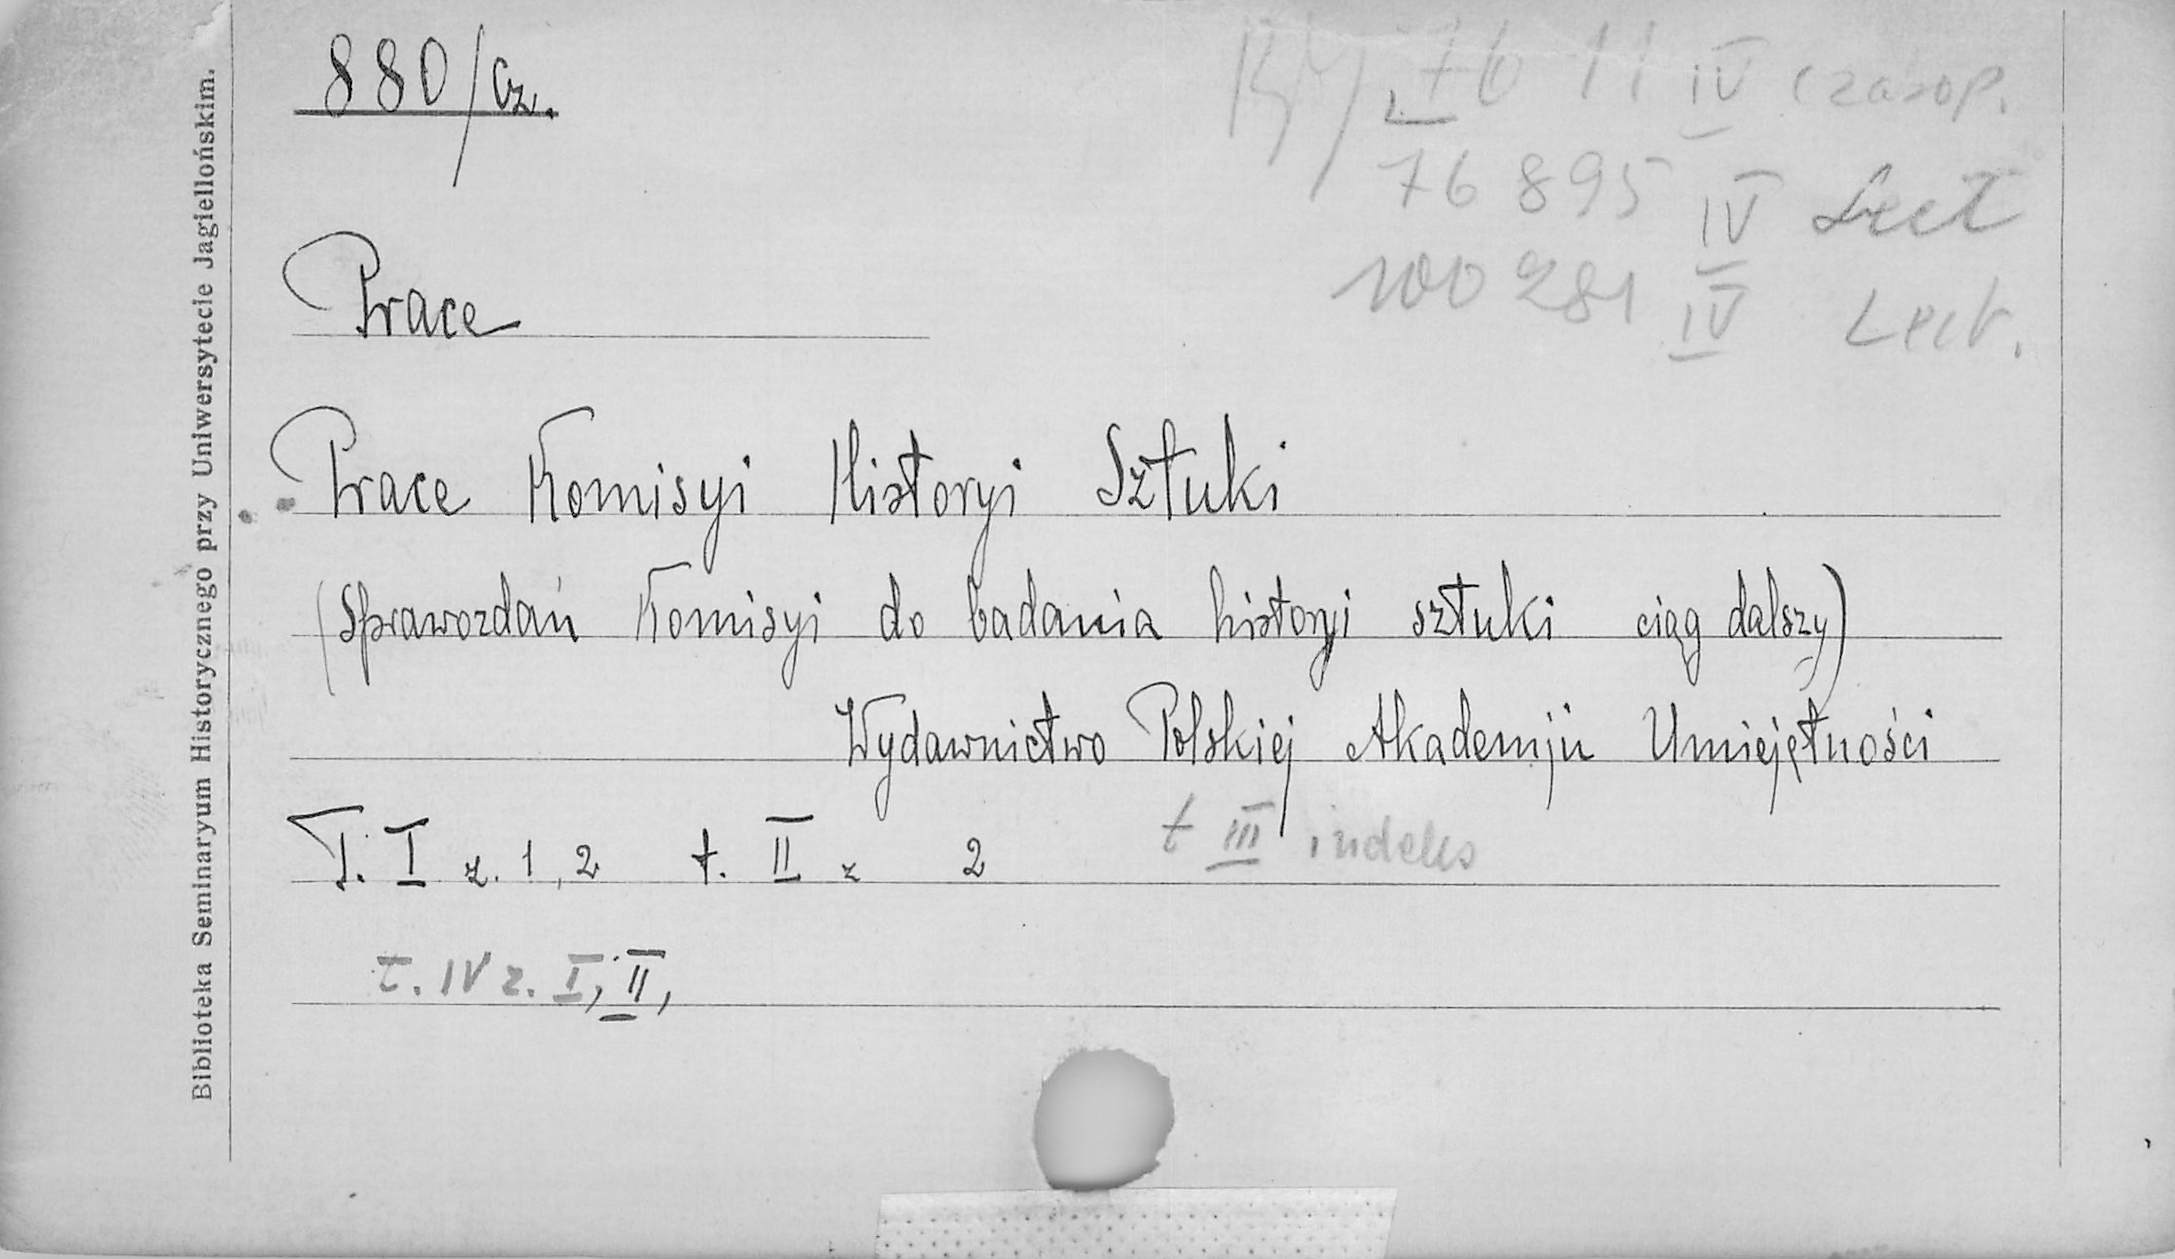 Biblioteka Seminaryum Historycznego przy Uniwersytecie Jagiellońskim.
880/Cz.
7611 IV czasop.
76895 IV Lect
100281 IV Lect.
Prace
Prace Komisyi Historyi Sztuki
(Sprawozdań Komisyi do badania historyi sztuki ciąg dalszy)
Wydawnictwo Polskiej Akademji Umiejętności
T. I z. 1, 2 t. II z 2 t III indeks
t. IV z. I, II,